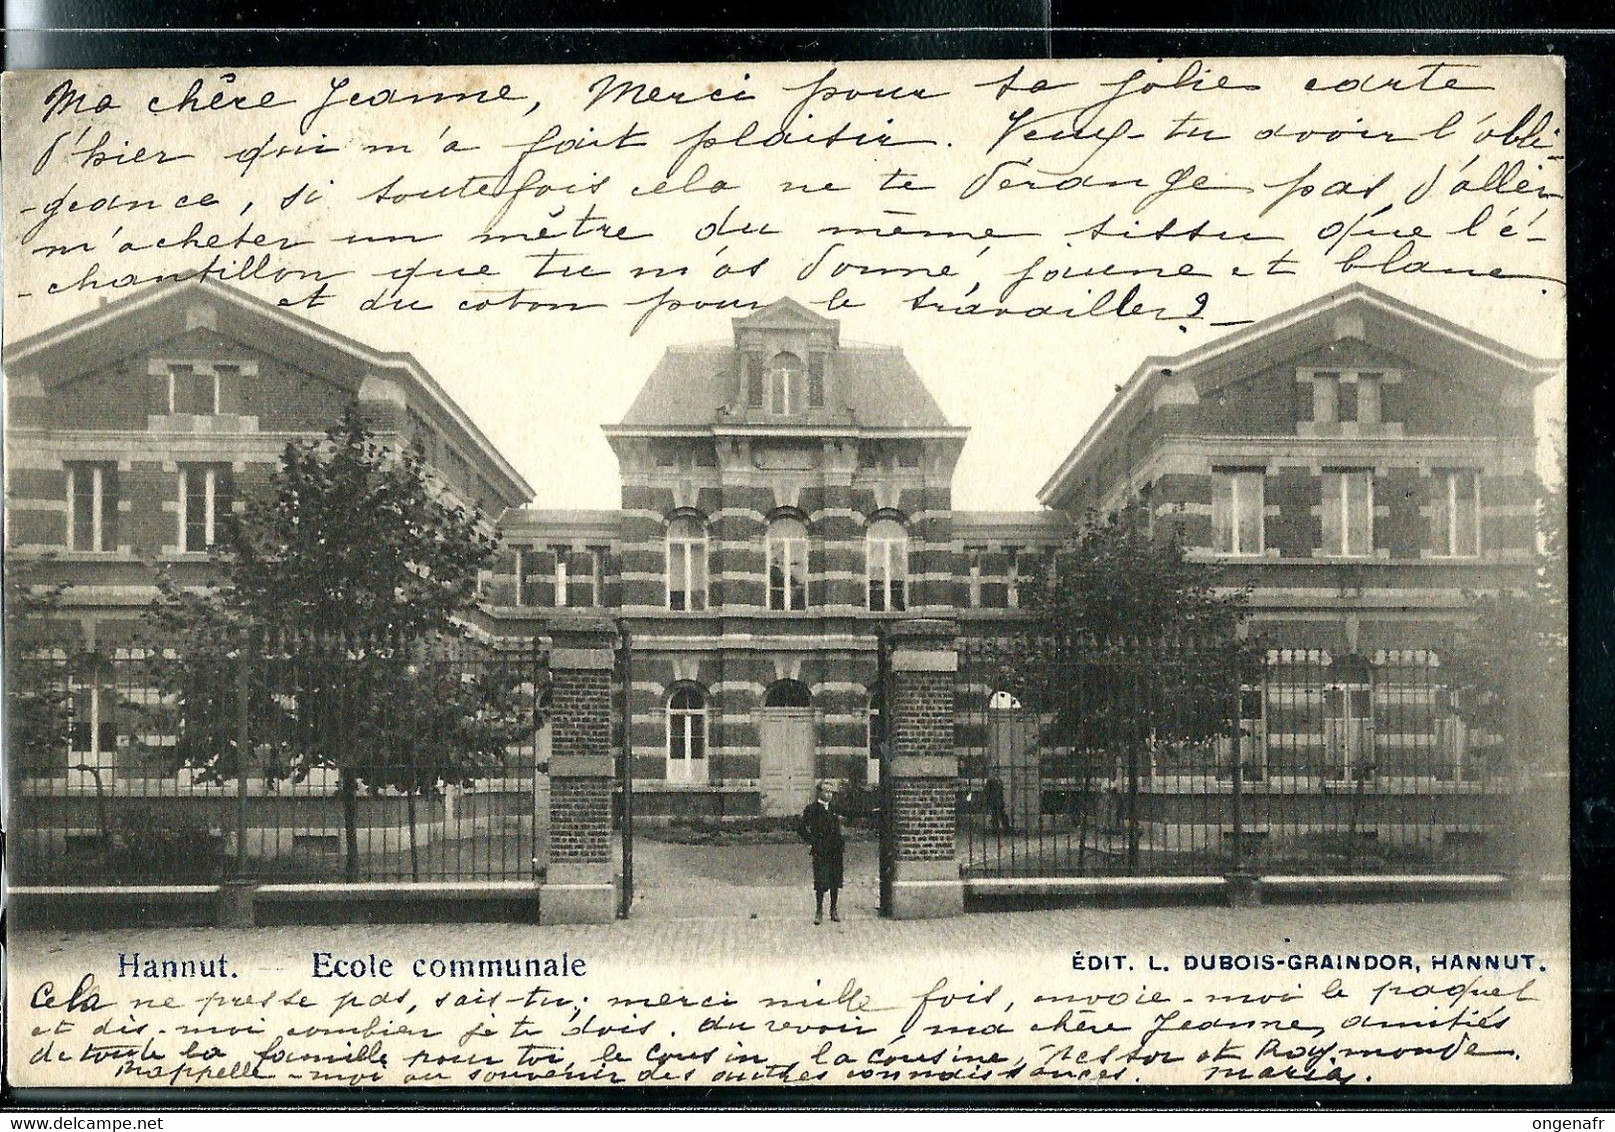 Ma chère Jeanne, Merci pour ta jolie carte
d'hier qui m'a fait plaisir. Veux-tu avoir l'obli-
-geance, si toutefois cela ne te dérange pas d'aller
m'acheter un mètre du même tissu que l'é-
-chantillon que tu m'as donné, jaune et blanc
et du coton pour le travailler? -
Hannut. - Ecole communale
ÉDIT. L. DUBOIS-GRAINDOR, HANNUT.
Cela ne presse pas, sais-tu; merci mille fois, envoie-moi le paquet
et dis-moi combien je te dois. Au revoir, ma chère Jeanne, amitiés
de toute la famille pour toi, le cousin, la cousine, Nestor et Raymonde.
Rappelle-moi au souvenir des autres connaissances. Maria.
ongenafr